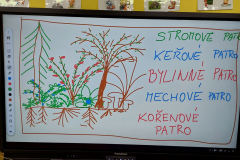 STROMOVÉ PATRO
KEŘOVÉ PATRO
BYLINNÉ PATRO
MECHOVÉ PATRO
KOŘENOVÉ
PATRO